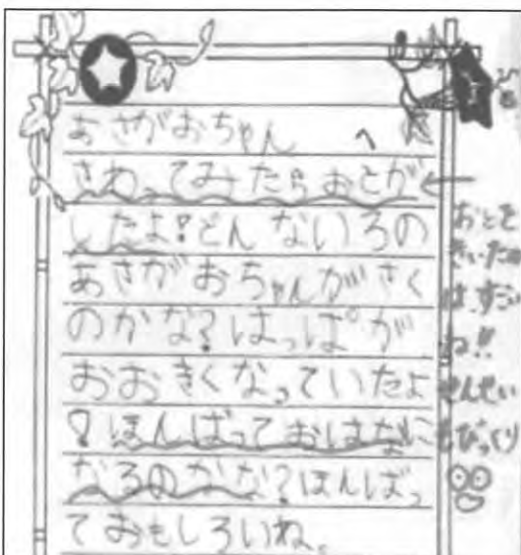 あさがおちゃん へ
さわってみたらおとが
したよ!どんないろの
あさがおちゃんがさく
のかな?はっぱが
おおきくなっていたよ
!ほんばっておはなに
なるのかな?ほんばっ
ておもしろいね。
おとを
きいたの
は、すごい
ね!!
せんせい
もびっくり